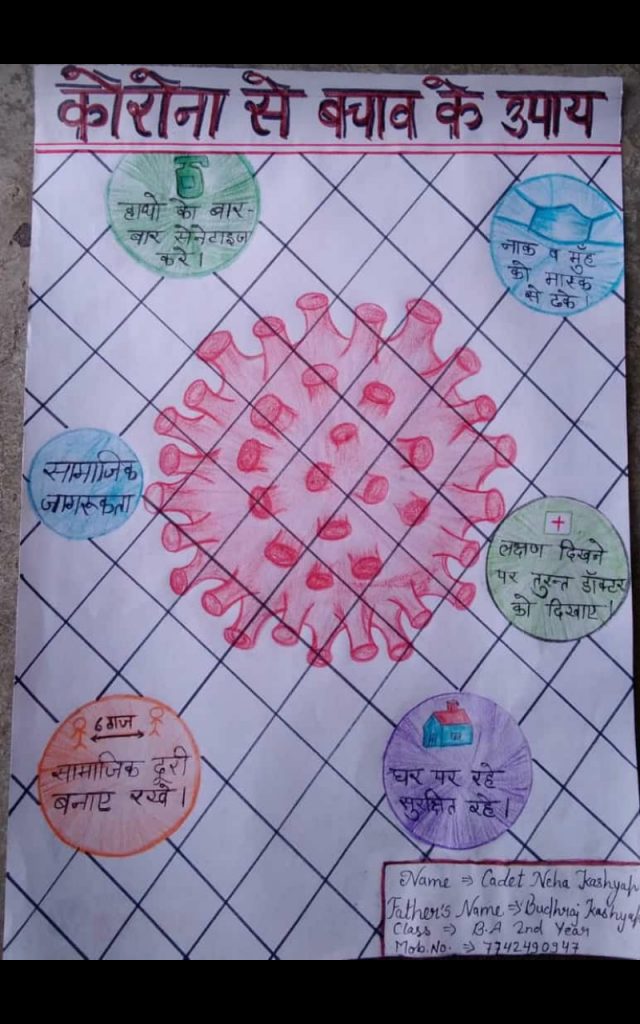 कोरोना से बचाव के उपाय
हाथो को बार-
बार सेनेटाइज
करे।
नाक व मुँह
को मास्क
से ढके।
सामाजिक
जागरूकता
लक्षण दिखने
पर तुरन्त डॉक्टर
को दिखाए।
6 गज
सामाजिक दूरी
बनाए रखे।
घर पर रहे
सुरक्षित रहे।
Name ⇒ Cadet Neha Kashyap
Father's Name ⇒ Budhraj Kashyap
Class ⇒ B.A 2nd Year
Mob.No. ⇒ 7742490947